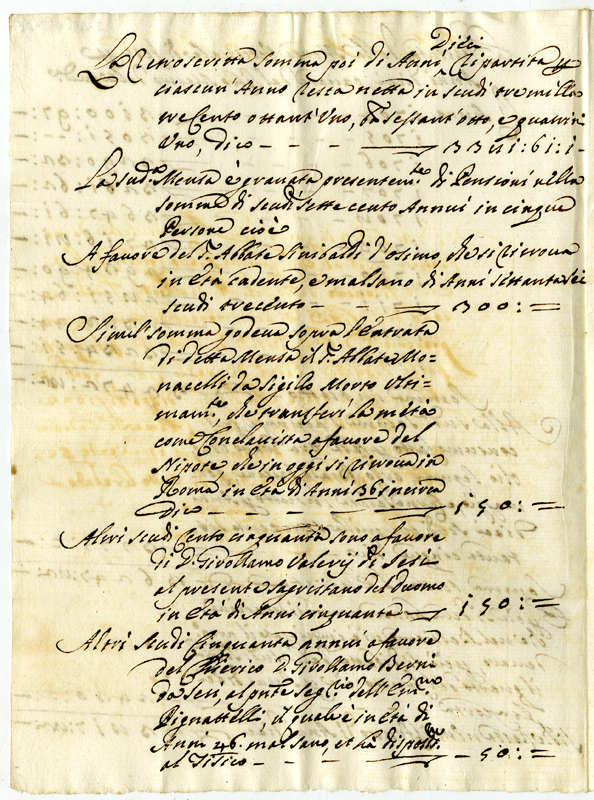 Dieci
La retroscritta somma poi di Anni, ripartita p
ciascun' Anno resta netta in scudi tre milla
tre Cento ottant'Uno, b. sessant'otto, e quattrin
Uno, dico - - - - 3381:61:1-
La sud.a Mensa è gravata presentem.te di Pensioni nella
somma di scudi sette cento Annui in cinque
Persone cioè
A favore del S. Abbate Sinibaldi d'Osimo, che si ritrova
in età cadente, e malsano di Anni settanta sei
scudi trecento - - - 300:=
Simil somma godeva sopra l'Entrata
di detta Mensa il S. Abbate Mo-
nacelli da Sigillo Morto Ulti-
mam.te, che transferì la metà
come Conclavista a favore del
Nipote, che in oggi si ritrova in
Roma in età di Anni 36 in circa
dico - - - - 150:=
Altri scudi Cento cinquanta sono a favore
di D. Girollamo Valerij di Jesi
al presente sagristano del duomo
in età di Anni cinquanta - 150:=
Altri scudi Cinquanta annui a favore
del Chierico D. Girollamo Berni
da Jesi, al pnte seg.rio dell'Em.mo
Pignattelli, il quale è in età di
Anni 46. malsano, et hà disposti.ne
al Tisico - - - - 50:=